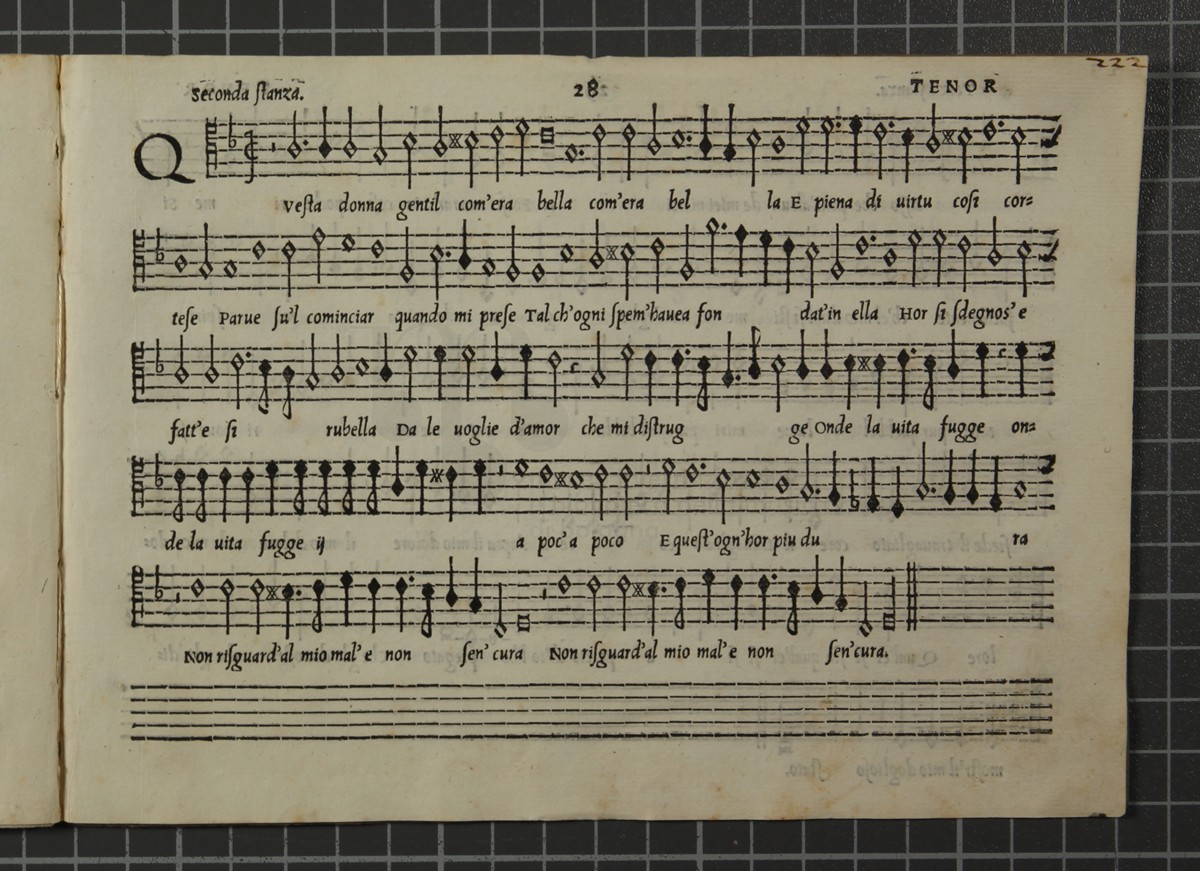 222
Seconda ſtanza. 28 TENOR
Q veſta donna gentil com'era bella com'era bel la E piena di uirtu coſi cor=
teſe Parue ſu'l cominciar quando mi preſe Tal ch'ogni ſpem'hauea fon dat'in ella Hor ſi ſdegnoſ' e
fatt'e ſi rubella Da le uoglie d'amor che mi diſtrug ge Onde la uita fugge on=
de la uita fugge ij a poc'a poco E queſt'ogn'hor piu du ra
Non riſguard'al mio mal' e non ſen' cura Non riſguard'al mio mal' e non ſen'cura.